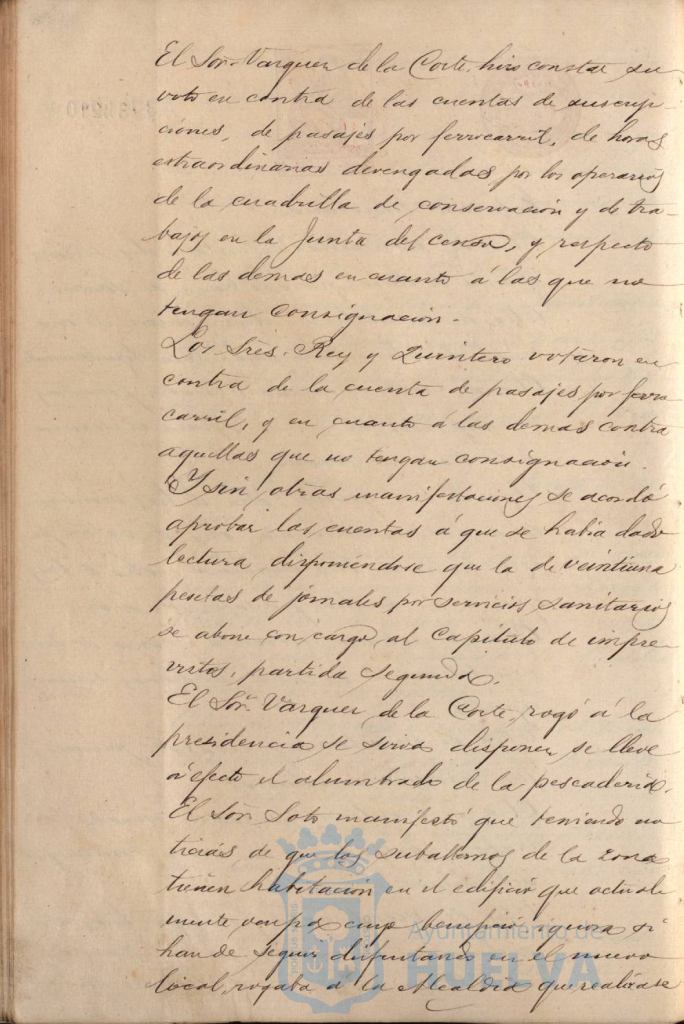 El Sór. Vazquez de la Corte, hizo constar su
voto en contra de las cuentas de suscrip-
ciones, de pasajes por ferrocarril, de horas
extraordinarias devengadas por los operarios
de la cuadrilla de conservacion y de tra-
bajos en la Junta del Censo, y respecto
de las demas en cuanto á las que no
tengan consignacion.
Los Sres. Rey y Quintero votaron en
contra de la cuenta de pasajes por ferro
carril, y en cuanto á las demas contra
aquellas que no tengan consignacion.
Y sin otras manifestaciones se acordó
aprobar las cuentas á que se habia dado
lectura disponiendose que la de veintiuna
pesetas de jornales por servicios sanitarios
se abone con cargo al Capitulo de impre-
vistos, partida segunda.
El Sór. Vazquez de la Corte rogó á la
presidencia se sirva disponer se lleve
á efecto el alumbrado de la pescaderia.
El Sór. Soto manifestó que teniendo no
ticias de que los subalternos de la zona
tienen habitacion en el edificio que actual-
mente ocupa cuyo beneficio ignora si
han de seguir disfrutando en el nuevo
local, rogaba á la Alcaldia que realizase
Ayuntamiento de
HUELVA